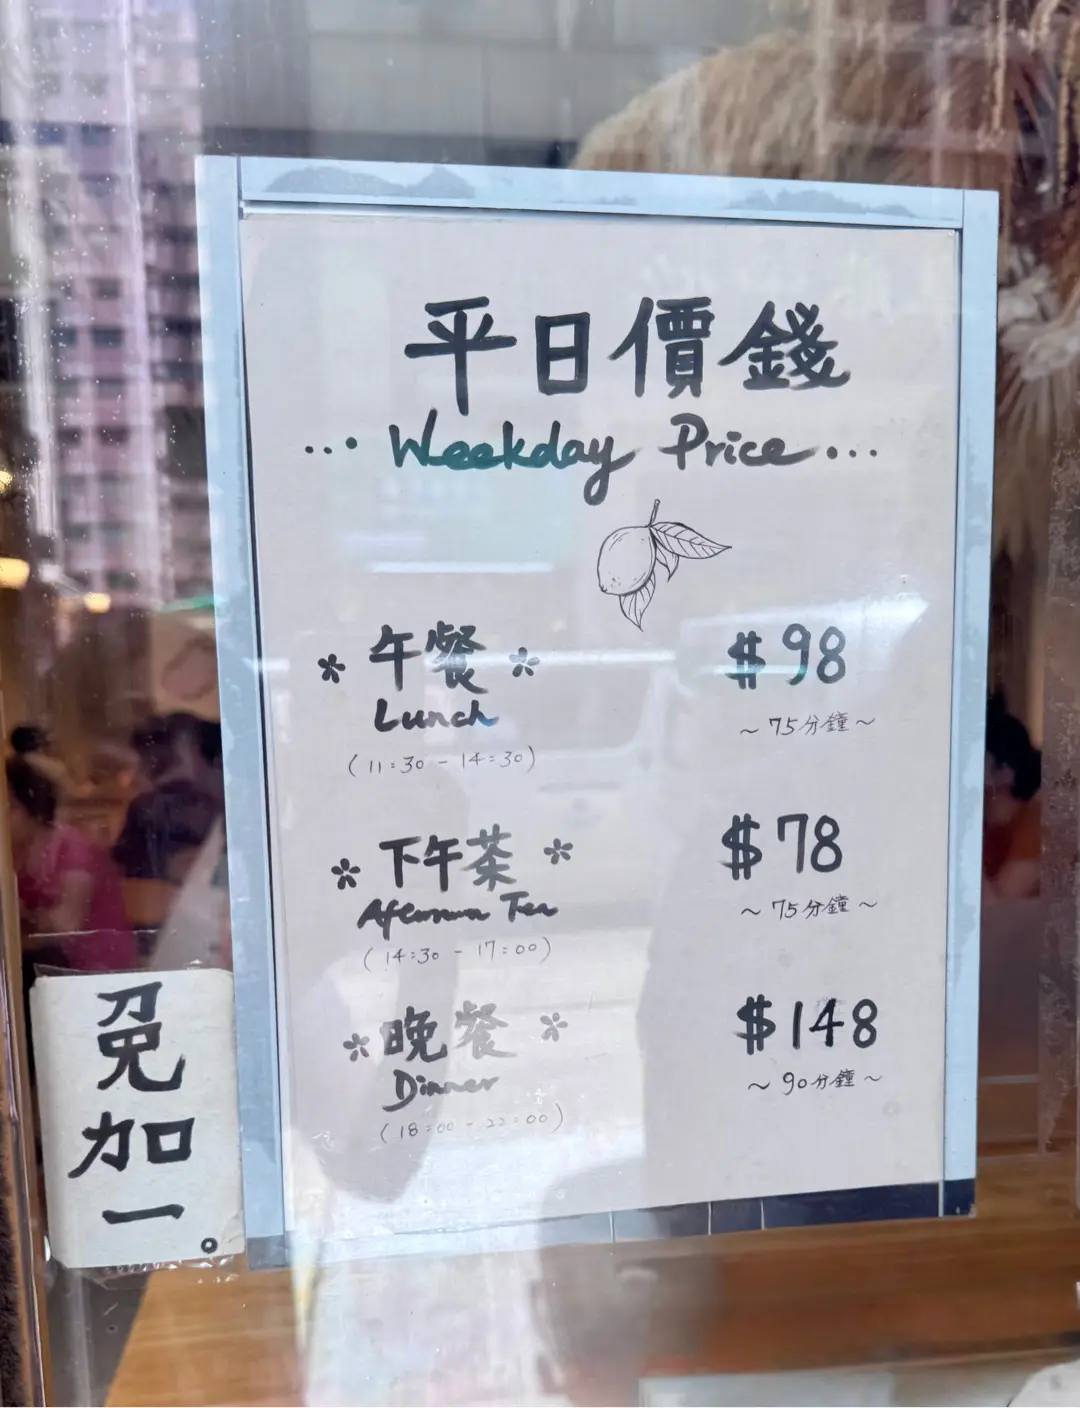 平日價錢
... Weekday Price ...
午餐
$98
Lunch
~75分鐘~
(11:30 - 14:30)
下午茶
$78
Afternoon Tea
~75分鐘~
(14:30 - 17:00)
晚餐
$148
Dinner
~90分鐘~
(18:00 - 22:00)
免
加
一
。